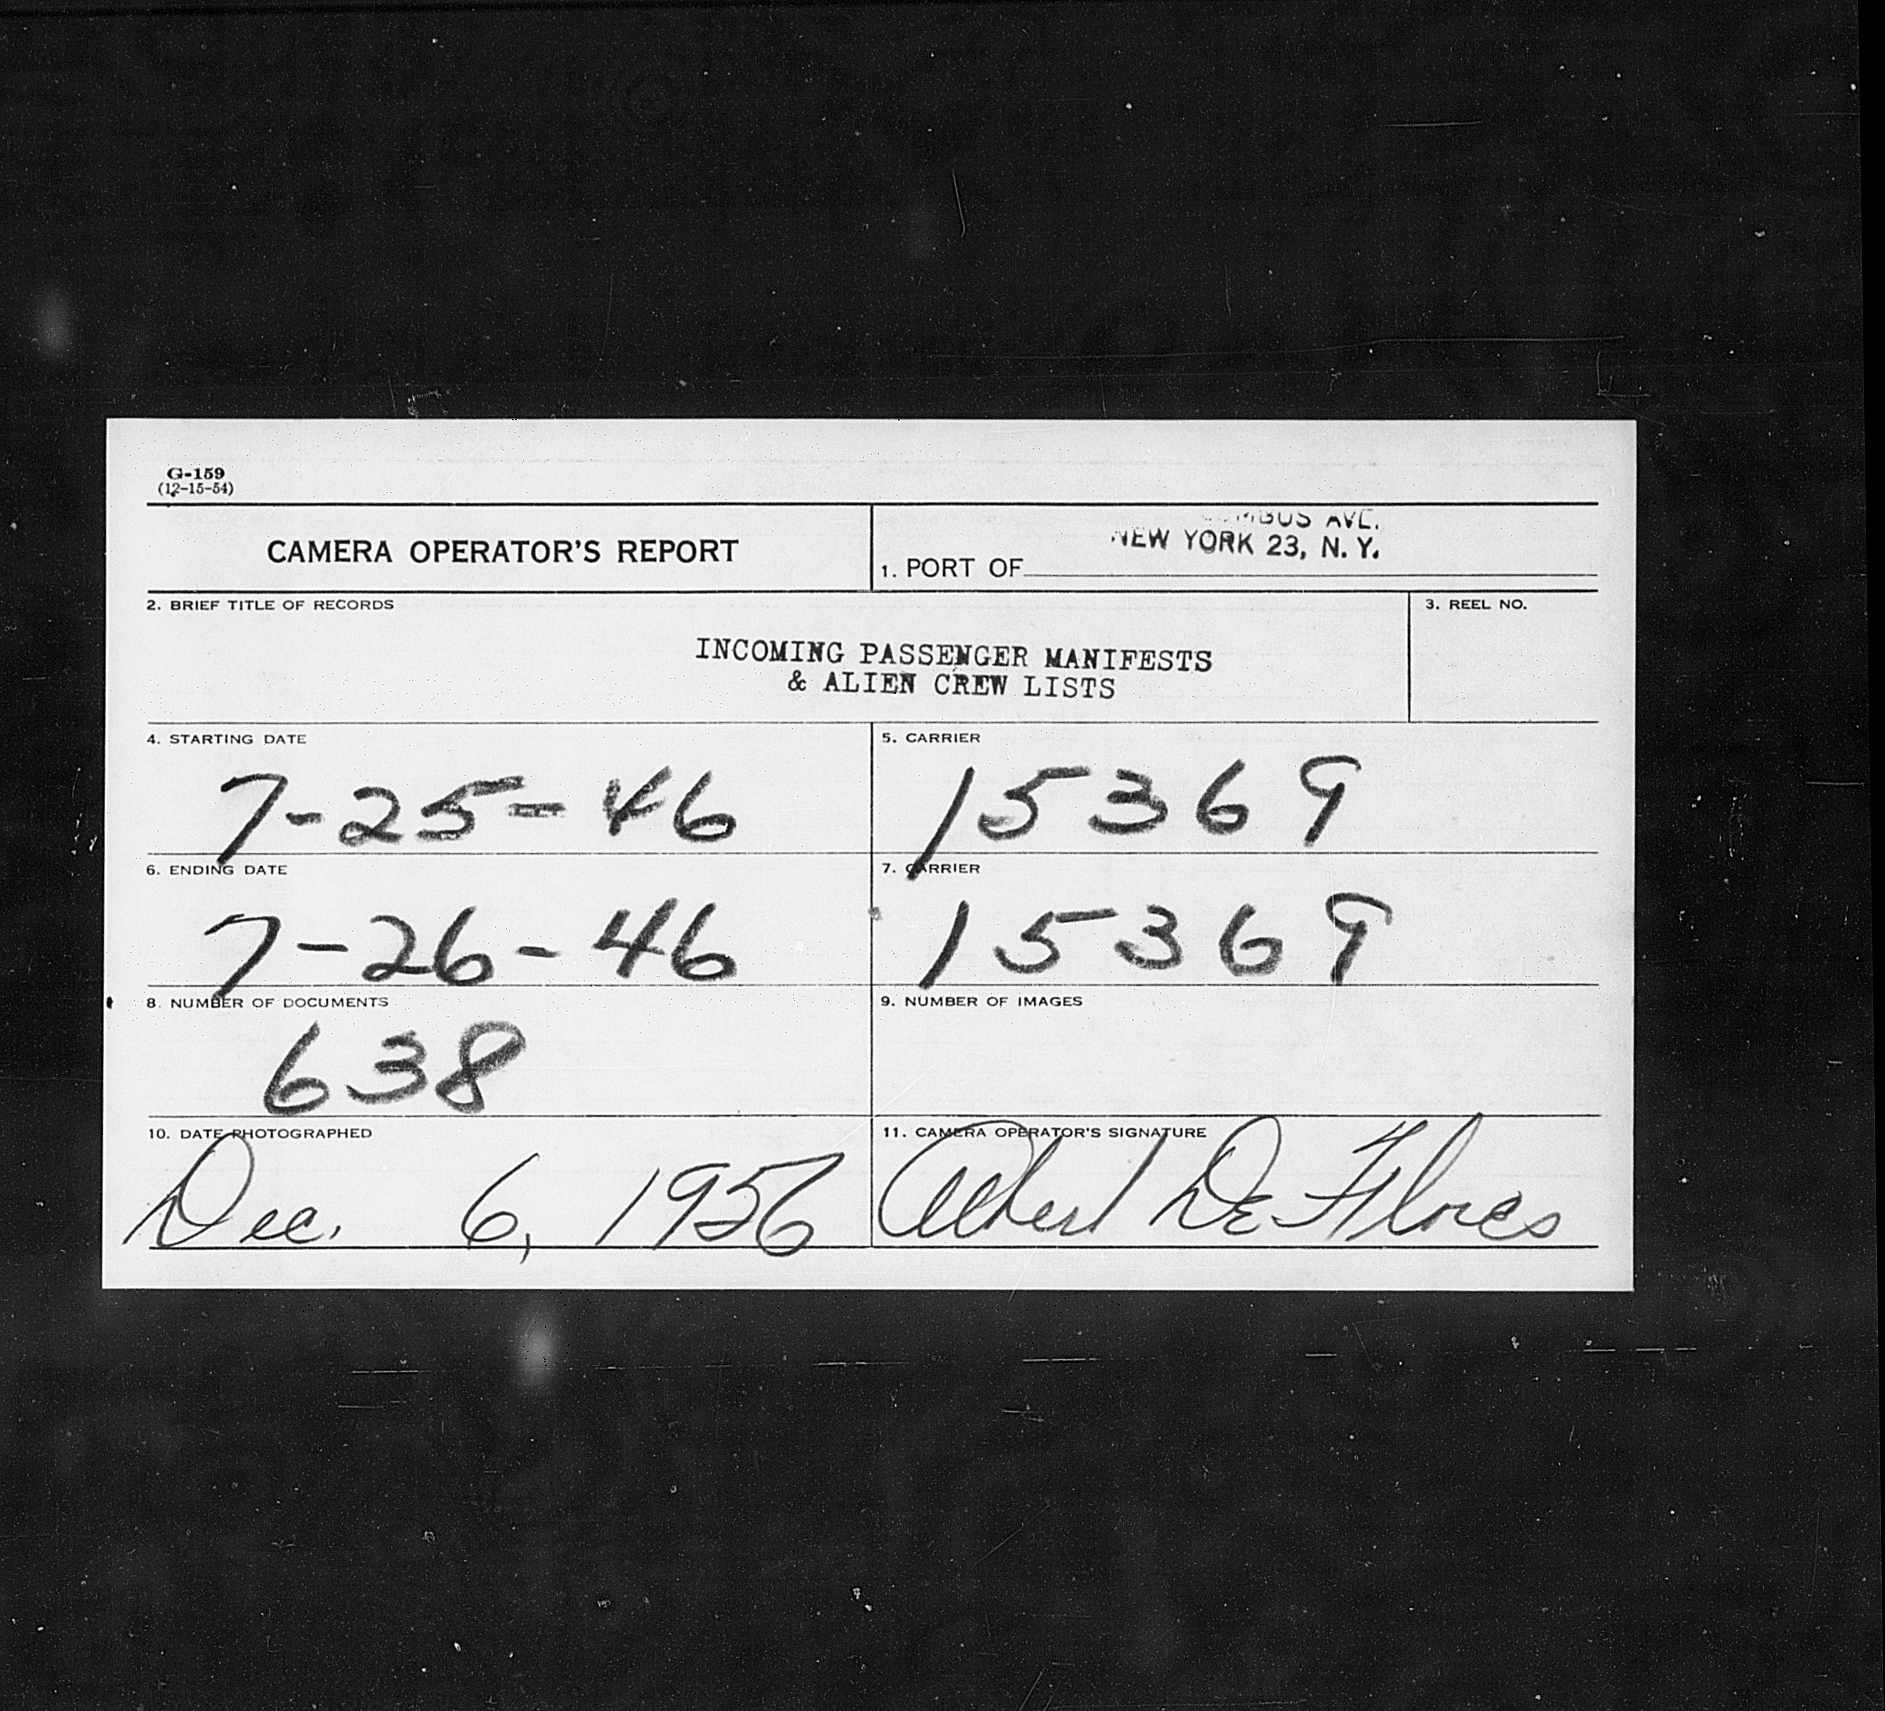 G-159
(12-15-54)
CAMERA OPERATOR'S REPORT
AVE.
NEW YORK 23, N. Y.
1. PORT OF
2. BRIEF TITLE OF RECORDS
3. REEL NO.
INCOMING PASSENGER MANIFESTS
& ALIEN CREW LISTS
4. STARTING DATE
7-25-46
5. CARRIER
15369
6. ENDING DATE
7-26-46
7. CARRIER
15369
8. NUMBER OF DOCUMENTS
638
9. NUMBER OF IMAGES
10. DATE PHOTOGRAPHED
Dec. 6, 1956
11. CAMERA OPERATOR'S SIGNATURE
Albert De Flores